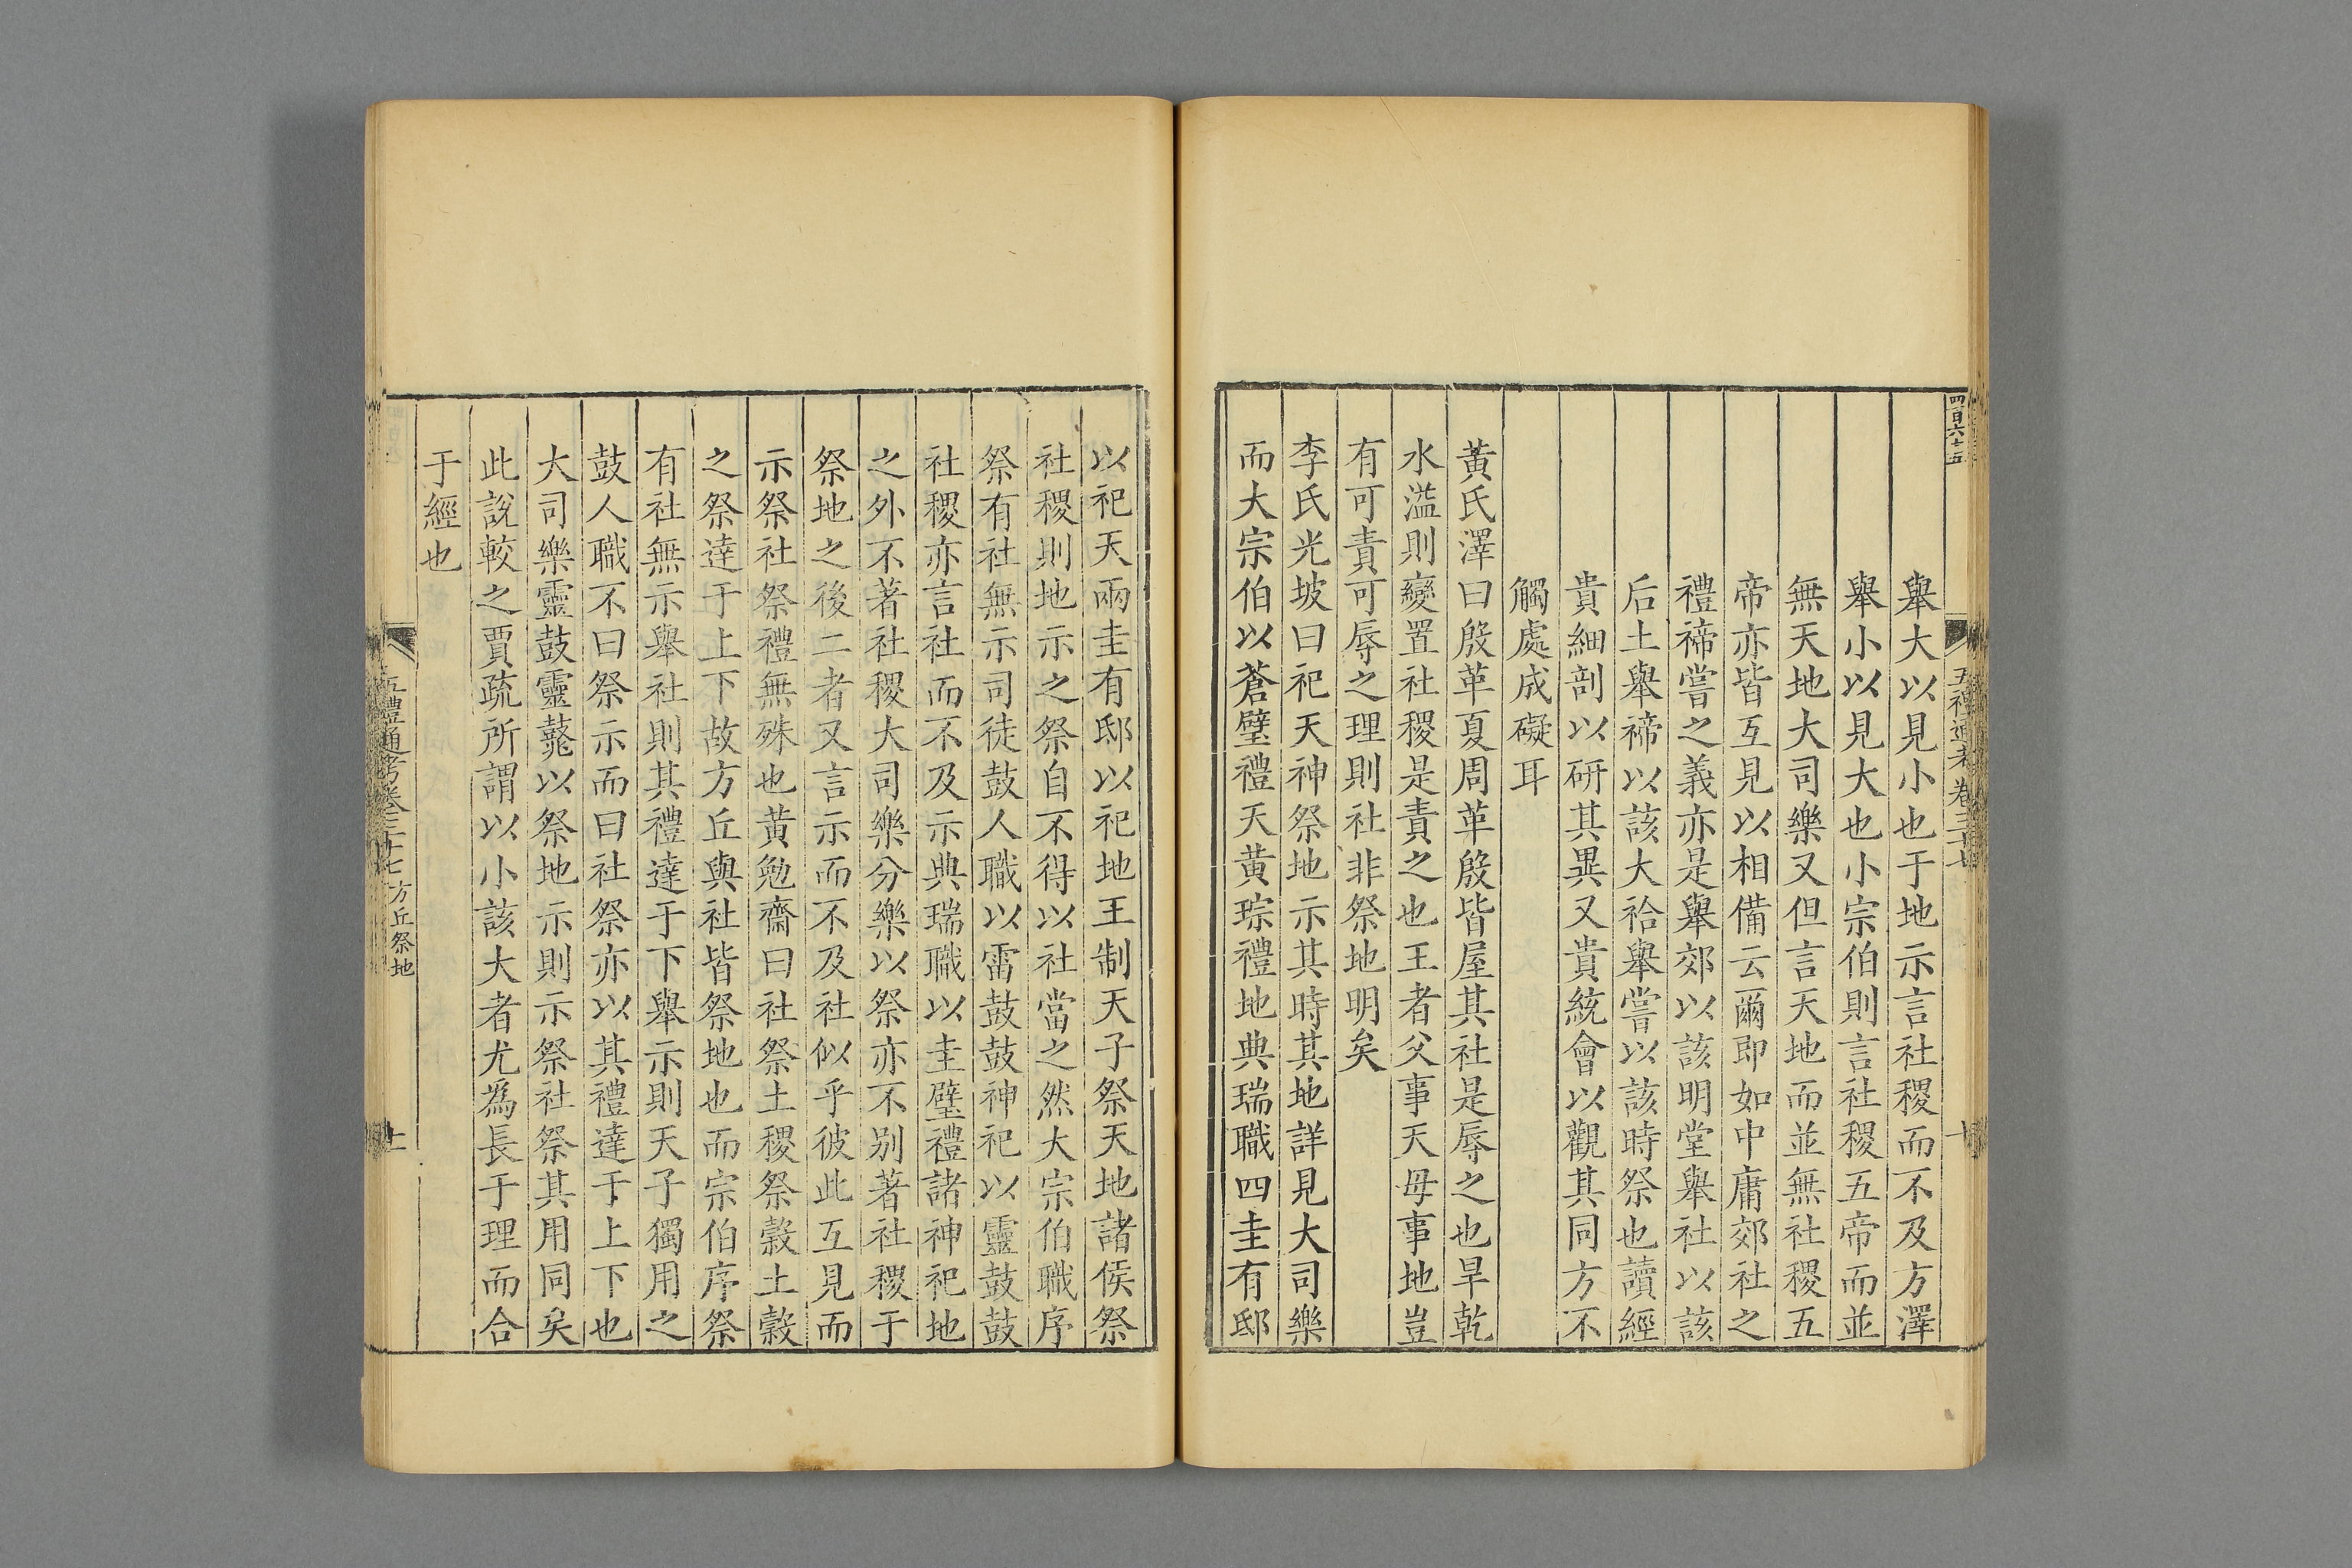 四百六十五
五禮通考卷三十七
十
舉大以見小也于地示言社稷而不及方澤
舉小以見大也小宗伯則言社稷五帝而並
無天地大司樂又但言天地而並無社稷五
帝亦皆互見以相備云爾即如中庸郊社之
禮禘嘗之義亦是舉郊以該明堂舉社以該
后土舉禘以該大祫舉嘗以該時祭也讀經
貴細剖以研其異又貴統會以觀其同方不
觸處成礙耳
黃氏澤曰殷革夏周革殷皆屋其社是辱之也旱乾
水溢則變置社稷是責之也王者父事天母事地豈
有可責可辱之理則社非祭地明矣
李氏光坡曰祀天神祭地示其時其地詳見大司樂
而大宗伯以蒼璧禮天黃琮禮地典瑞職四圭有邸
以祀天兩圭有邸以祀地王制天子祭天地諸侯祭
社稷則地示之祭自不得以社當之然大宗伯職序
祭有社無示司徒鼓人職以雷鼓鼓神祀以靈鼓鼓
社稷亦言社而不及示典瑞職以圭璧禮諸神祀地
之外不著社稷大司樂分樂以祭亦不別著社稷于
祭地之後二者又言示而不及社似乎彼此互見而
示祭社祭禮無殊也黃勉齋曰社祭土稷祭穀土穀
之祭達于上下故方丘與社皆祭地也而宗伯序祭
有社無示舉社則其禮達于下舉示則天子獨用之
鼓人職不曰祭示而曰社祭亦以其禮達于上下也
大司樂靈鼓靈鼗以祭地示則示祭社祭其用同矣
此說較之賈疏所謂以小該大者尤為長于理而合
于經也
五禮通考卷三十七 方丘祭地